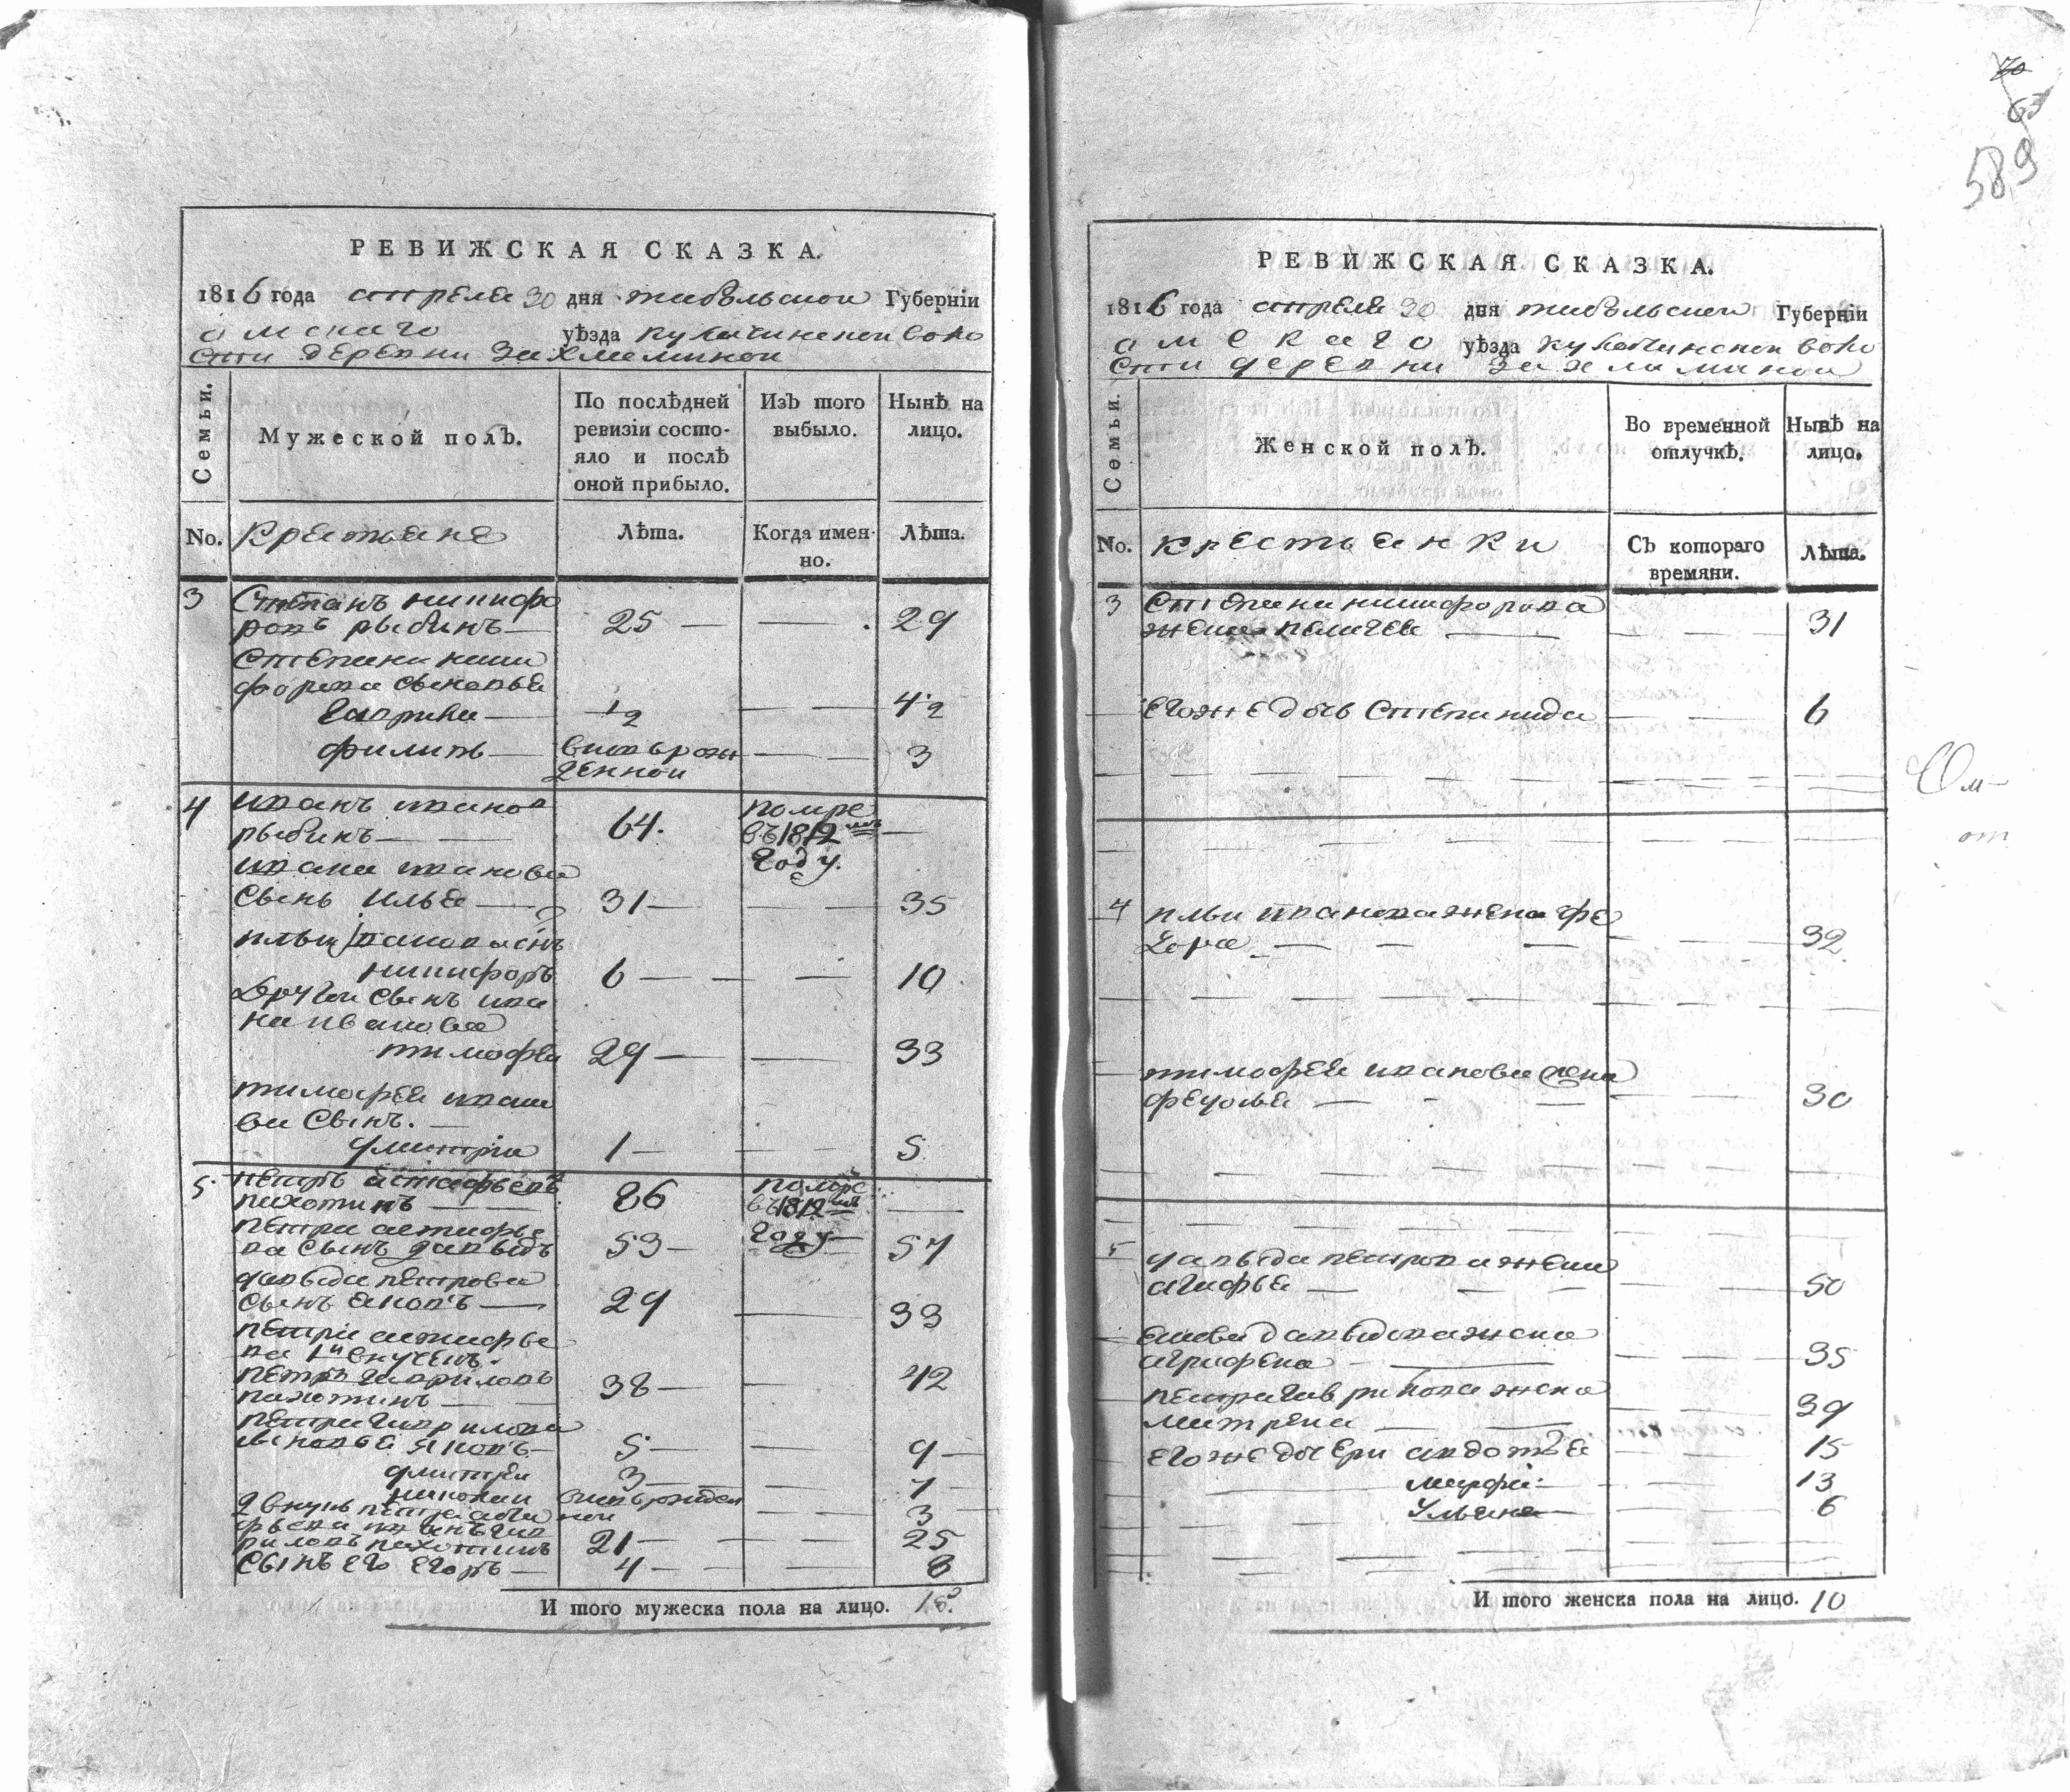 70
63
589
РЕВИЖСКАЯ СКАЗКА.
1816 года апреля 30 дня тобольской Губерніи
омскаго уѣзда кулачинской воло
сти деревни Захламиной
Семьи.
Мужеской полъ.
По послѣдней ревизіи состо-
яло и послѣ
оной прибыло.
Изъ того
выбыло.
Нынѣ на
лицо.
No. крестьяне Лѣта. Когда имен-
но. Лѣта.
3 Степанъ никифо
ровъ рыбинъ 25 29
Степана ники
форова сыновья
Гаврила 1/2 4 1/2
филипъ вновь рож
денной 3
4 иванъ иванов
рыбинъ 64. помре
въ 1812мъ
году.
ивана иванова
сынъ илья 31 35
ильи иванова сынъ
никифоръ 6 10
Другой сынъ ива
на иванова
тимофеи 29 33
тимофея ивано
ва сынъ.
дмитрїи 1 5
5 петръ астафьевъ
пахотинъ 86 помре
въ 1812мъ
году
петра астафье
ва сынъ давыдъ 53 57
давыда петрова
сынъ яковъ 29 33
петра астафье
ва 1й внучек.
петръ гавриловъ
пахотинъ 38 42
петра гаврилова
сыновья яковъ 5 9
дмитреи 3 7
николаи вновь рожден
нои 3
2 внукъ петра аста
фьева иванъ гав
риловъ пахотинъ 21 25
сынъ его егоръ 4 8
И того мужеска пола на лицо. 15.
РЕВИЖСКАЯ СКАЗКА.
1816 года апреля 30 дня тобольской Губерніи
омскаго уѣзда кулачинской воло
сти деревни Захламиной
Семьи.
Женской полъ.
Во временной
отлучкѣ.
Нынѣ на
лицо.
No. крестьянки Съ котораго
времяни. Лѣта.
3 Степана никифорова
жена пелагея 31
его же дочь Степанида 6
Ом-
от
4 ильи иванова жена фе
дора 32
тимофея иванова жена
федосья 30
5 давыда петрова жена
агафья 50
якова давыдова жена
аграфена 35
петра гаврилова жена
матрена 39
его же дочери авдотья 15
марфа 13
Ульяна 6
И того женска пола на лицо. 10